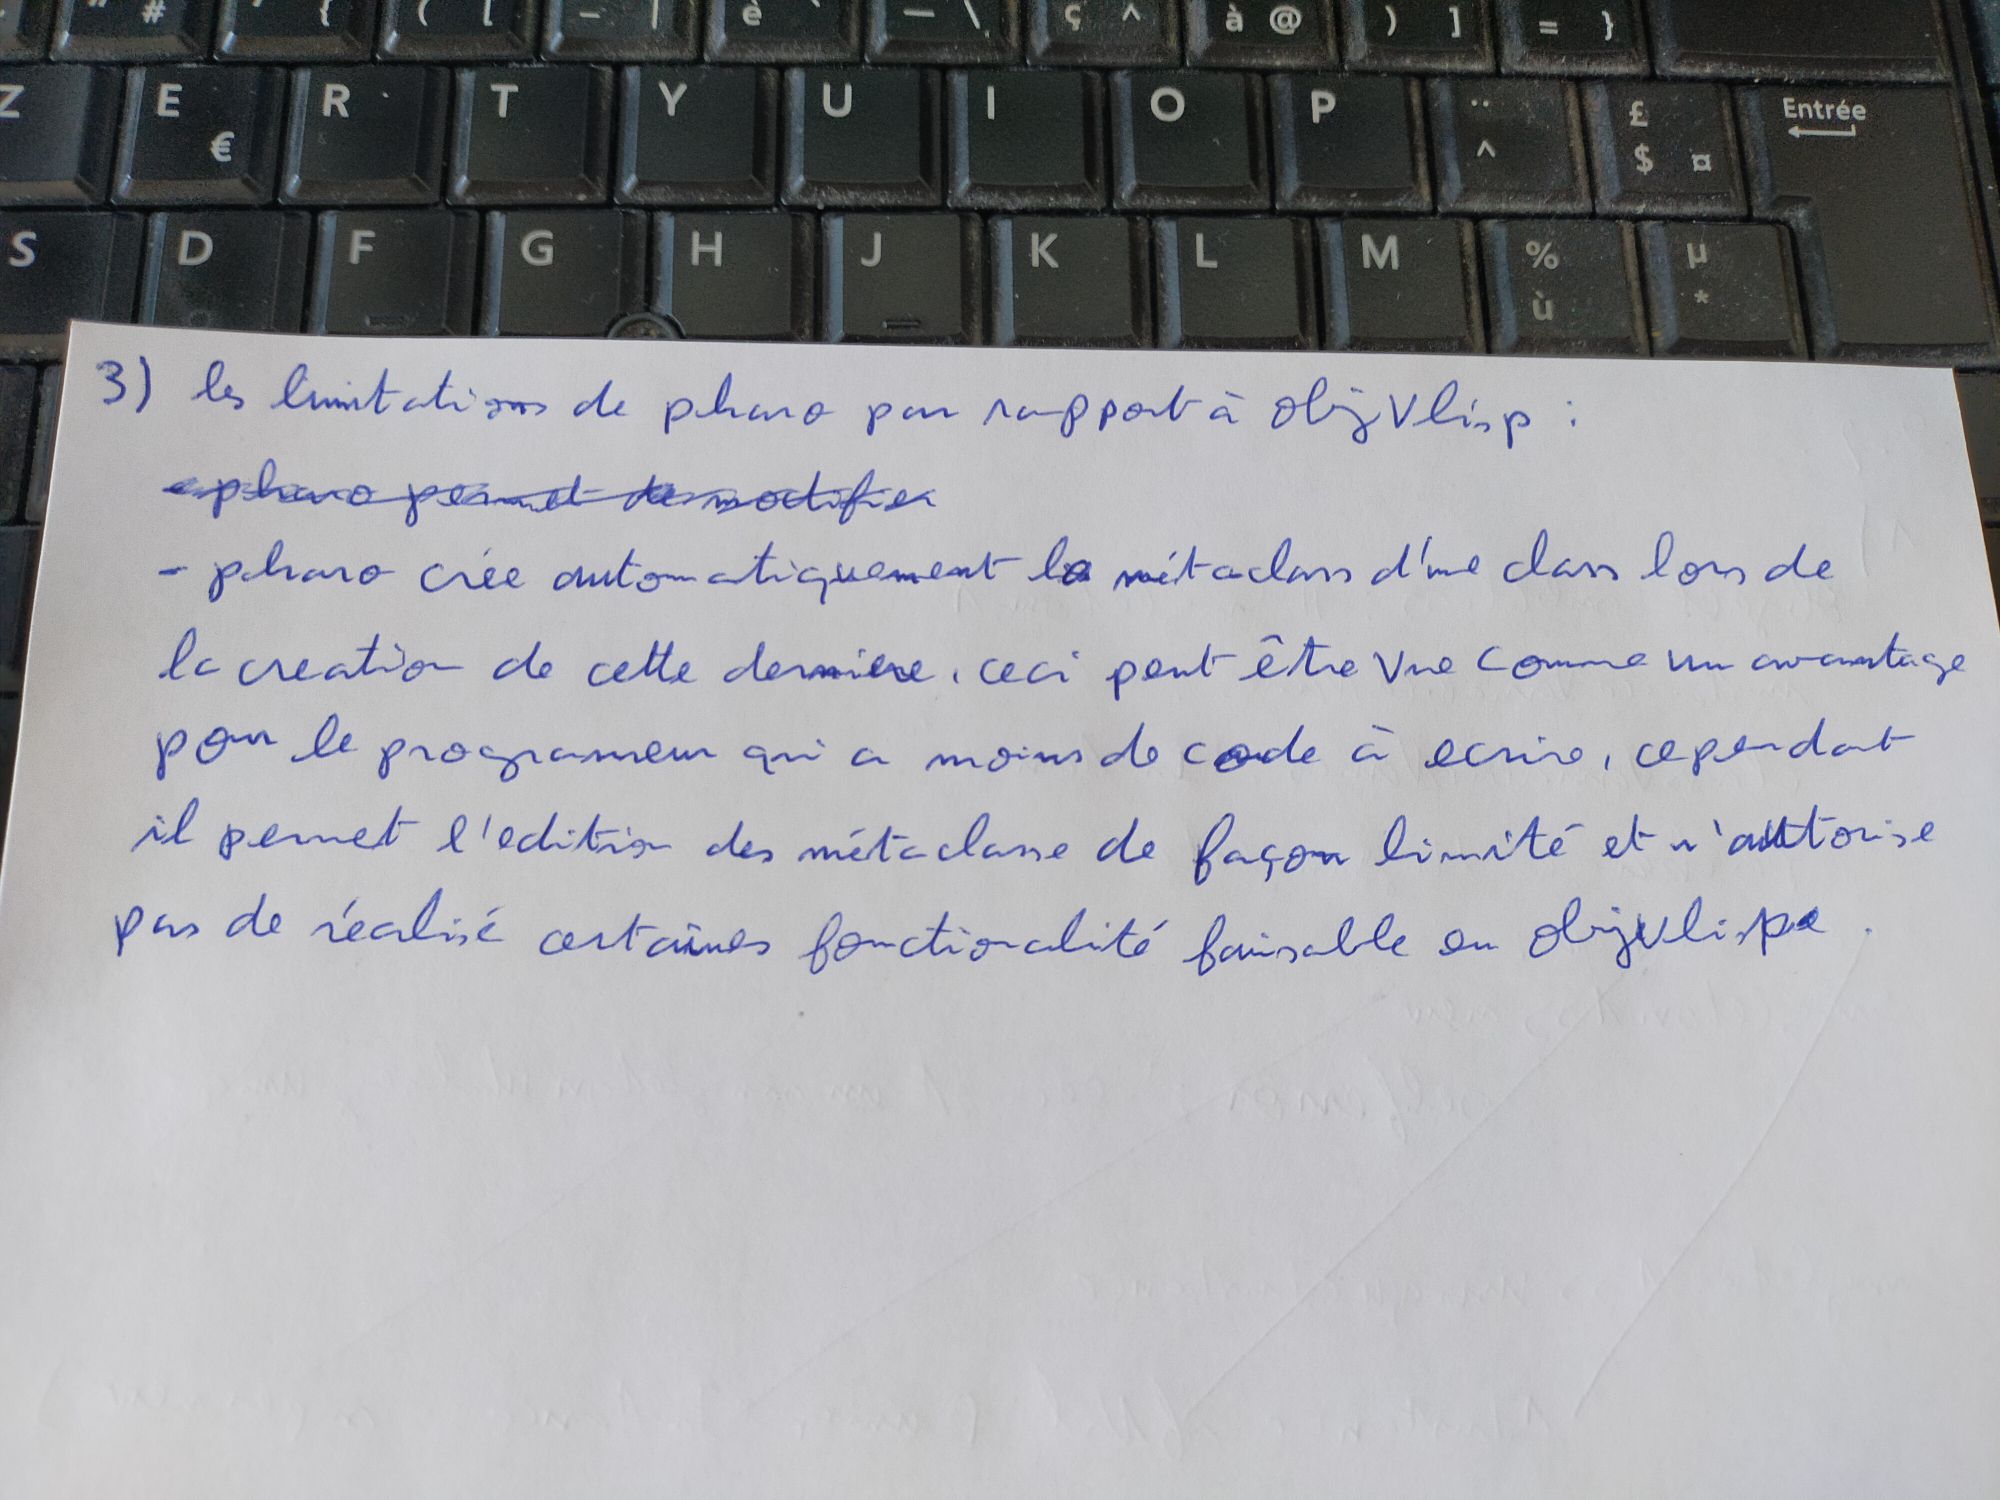 " # ' { ( [ - | è ` _ \ ç ^ à @ ) ] = }
Z E € R T Y U I O P ¨ ^ £ $ ¤ Entrée
S D F G H J K L M % ù µ *
3) les limitations de pharo par rapport à objVlisp :
- pharo permet de modifier
- pharo crée automatiquement la métaclass d'une class lors de
la creation de cette derniere. ceci peut être vue comme un avantage
pour le programeur qui a moins de code à ecrire, cependant
il permet l'edition des métaclasse de façon limité et n'autorise
pas de réalisé certaines fonctionalité faisable en objVlispe.